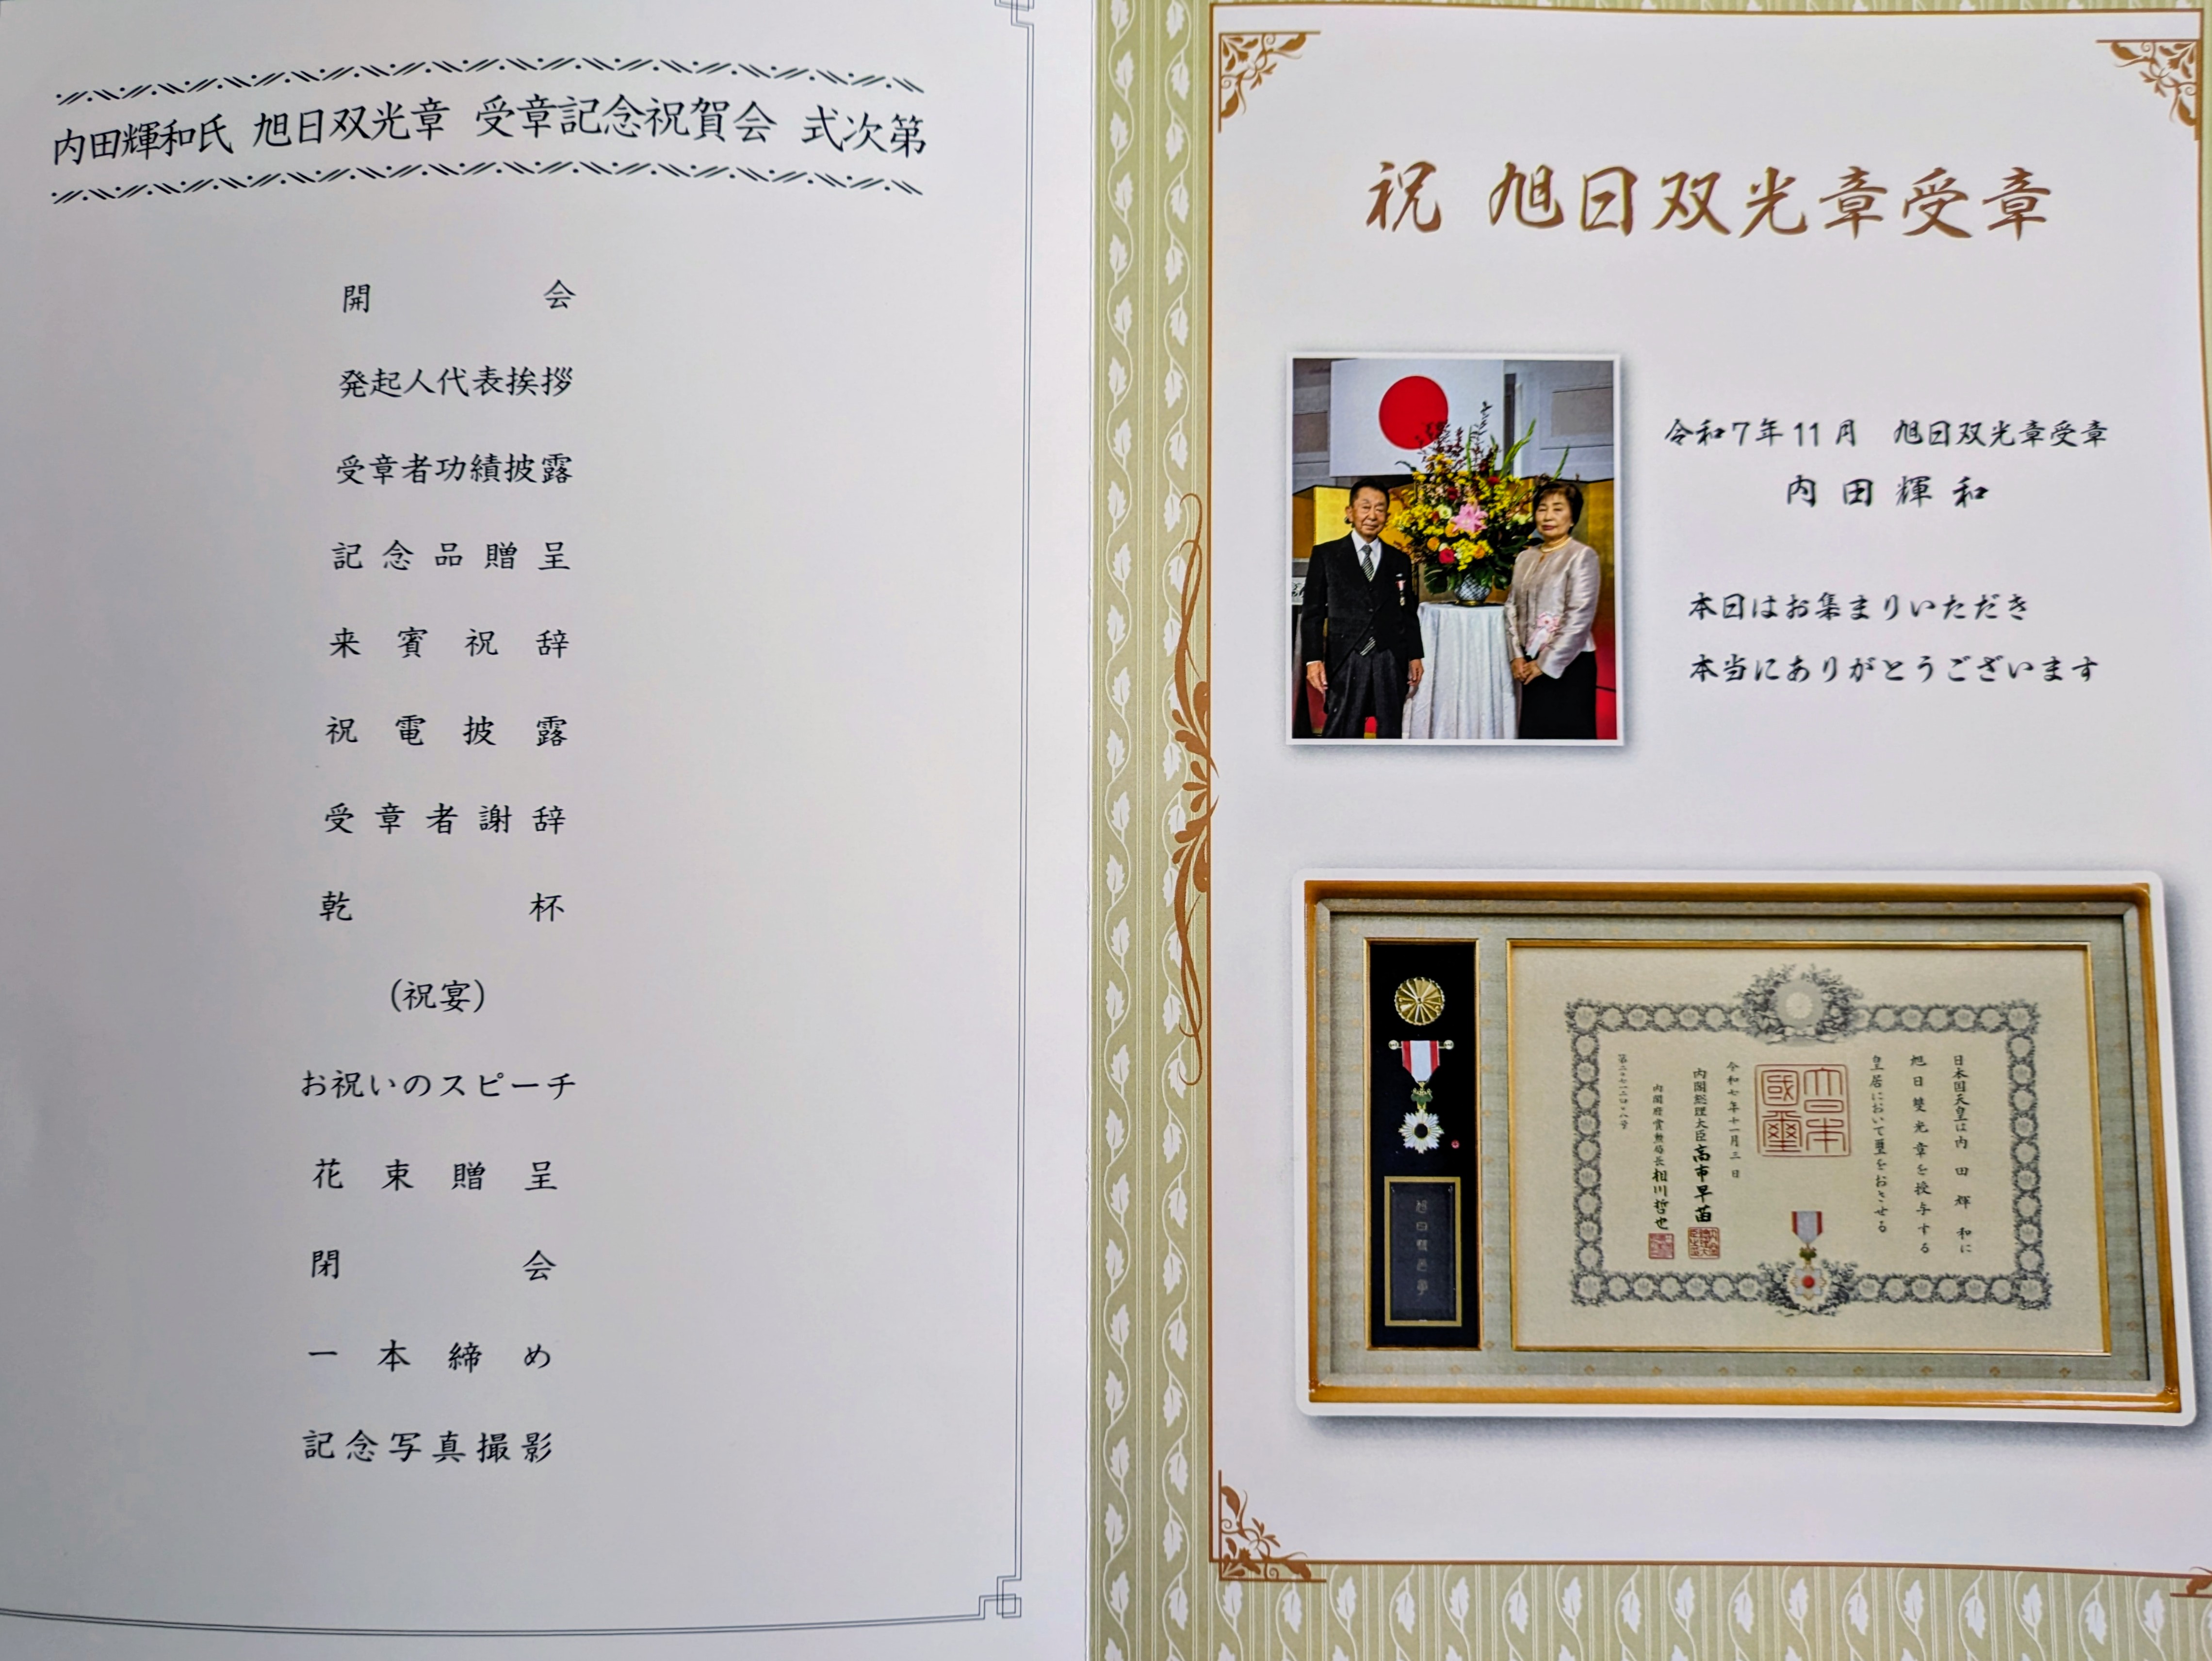 内田輝和氏 旭日双光章 受章記念祝賀会 式次第
開会
発起人代表挨拶
受章者功績披露
記念品贈呈
来賓祝辞
祝電披露
受章者謝辞
乾杯
(祝宴)
お祝いのスピーチ
花束贈呈
閉会
一本締め
記念写真撮影
祝 旭日双光章受章
令和7年11月 旭日双光章受章
内田輝和
本日はお集まりいただき
本当にありがとうございます
日本国天皇は内田輝和に
旭日雙光章を授与する
皇居において璽をおさせる
大日本
國璽
令和七年十一月三日
内閣総理大臣 高市早苗
内閣府賞勲局長 相川哲也